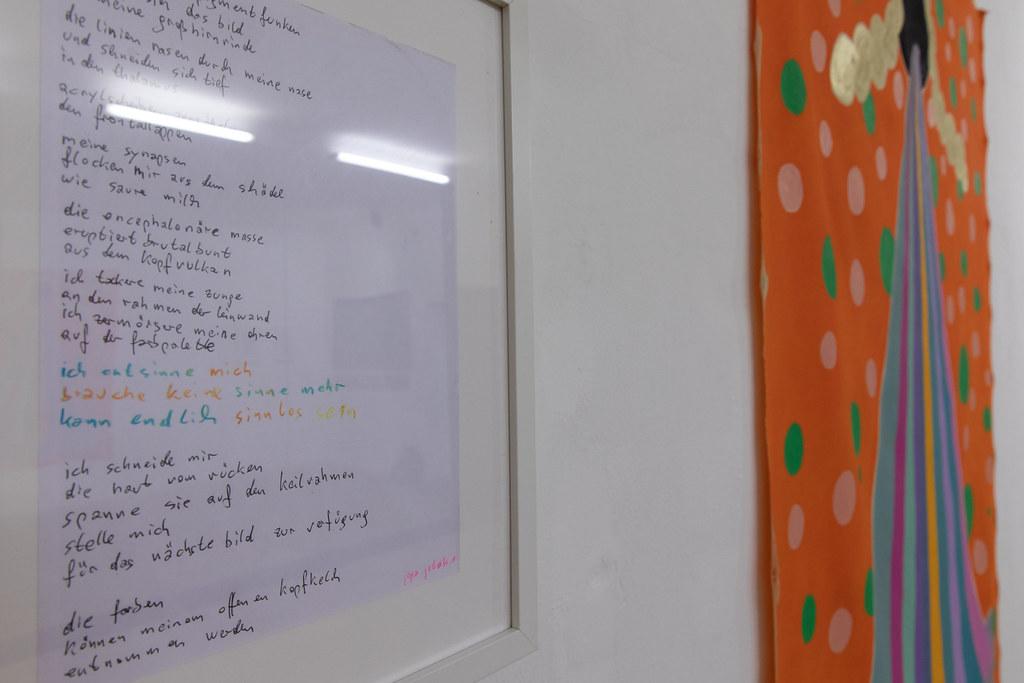 das bild
meine großhirnrinde
die linien rasen durch meine nase
und shneiden sich tief
in den thalamus
den frontallappen
meine synapsen
flocken mir aus dem shädel
wie saure milch
die encephalonäre masse
eruptiert brutalbunt
aus dem kopfvulkan
ich tackere meine zunge
an den rahmen der leinwand
ich zermörsere meine ohren
auf der farbpalette
ich entsinne mich
brauche keine sinne mehr
kann endlich sinnlos sein
ich schneide mir
die haut vom rücken
spanne sie auf den keilrahmen
stelle mich
für das nächste bild zur verfügung
die farben
können meinem offenen kopfkelch
entnommen werden